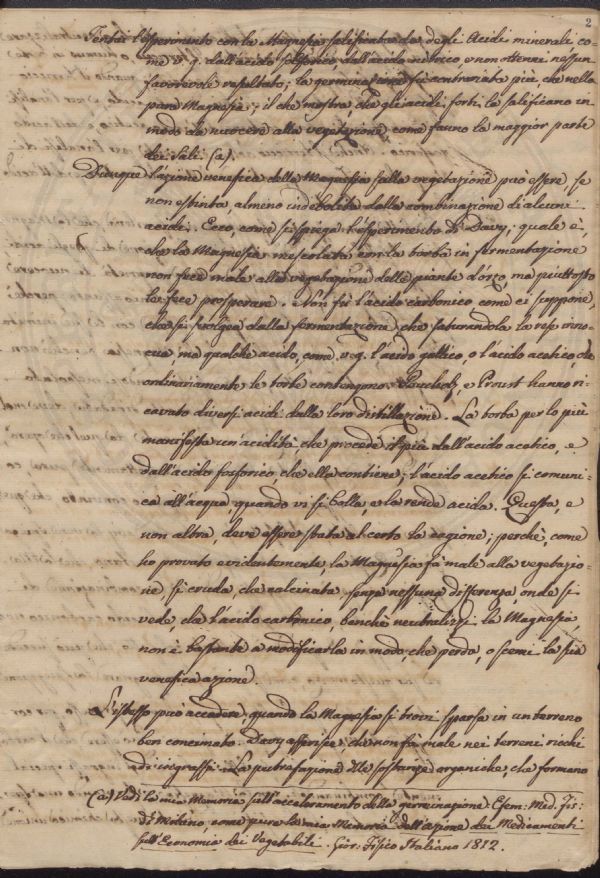 2
Tentai l'esperimento con la Magnesia salificata da degli Acidi minerali co-
me v. g. dall'acido solforico, dall'acido nitrico, e non ottenni nessun
favorevole resultato; la germinazione fù contrariata più che nella
pura Magnesia; il che mostra, che gli acidi forti la salificano in
modo da nuocere alla vegetazione come fanno la maggior parte
dei Sali. (a).
Dunque l'azione venefica della Magnesia sulla vegetazione può essere, se
non estinta, almeno indebolita dalla combinazione di alcuni
acidi. Ecco, come si spiega l'esperimento di Davy; quale è,
che la Magnesia mescolata con la torba in fermentazione
non fece male alla vegetazione delle piante d'orzo, ma piuttosto
le fece prosperare. Non fù l'acido carbonico come ei suppone,
che si svolgea dalla fermentazione, che saturandola la rese inno-
cua, ma qualche acido, come v. g. l'acido gallico, o l'acido acetico, che
ordinariamente le torbe contengono. e Proust hanno ri-
cavato diversi acidi dalla loro distillazione. La torba per lo più
manifesta un'acidità, che procede il più dall'acido acetico, e
dall'acido fosforico, che ella contiene; l'acido acetico si comuni-
ca all'acqua quando vi si bolla, e la rende acida. Questa, e
non altra, deve essere stata al certo la cagione; perchè, come
ho provato evidentemente, la Magnesia fa male alla vegetazio-
ne, sì cruda, che calcinata senza nessuna differenza, onde si
vede, che l'acido carbonico, benchè neutralizzi la Magnesia,
non è bastante a modificarla in modo, che perda, o scemi la sua
venefica azione.
L'istesso può accadere, quando la Magnesia si trovi sparsa in un terreno
ben concimato. Davy asserisce, che non fà male nei terreni ricchi
di ingrassi. La putrefazione delle sostanze organiche, che formano
(a) Vedi la mia Memoria sull'acceleramento della germinazione. Efem: Med. Fis:
di Milano, come pure la mia Memoria dell'azione dei Medicamenti
sull'Economia dei Vegetabili. Gior: Fisico Italiano 1812.